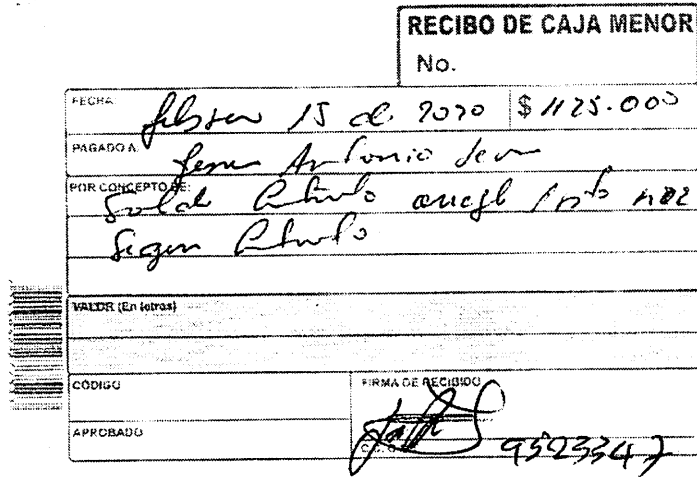 RECIBO DE CAJA MENOR
No.
FECHA: febrero 15 de 2020 $ 1125.000
PAGADO A: Antonio
POR CONCEPTO DE: Saldo Contrato arreglo
Segun Contrato
VALOR (En letras)
CÓDIGO FIRMA DE RECIBIDO
APROBADO C.C. 9523347